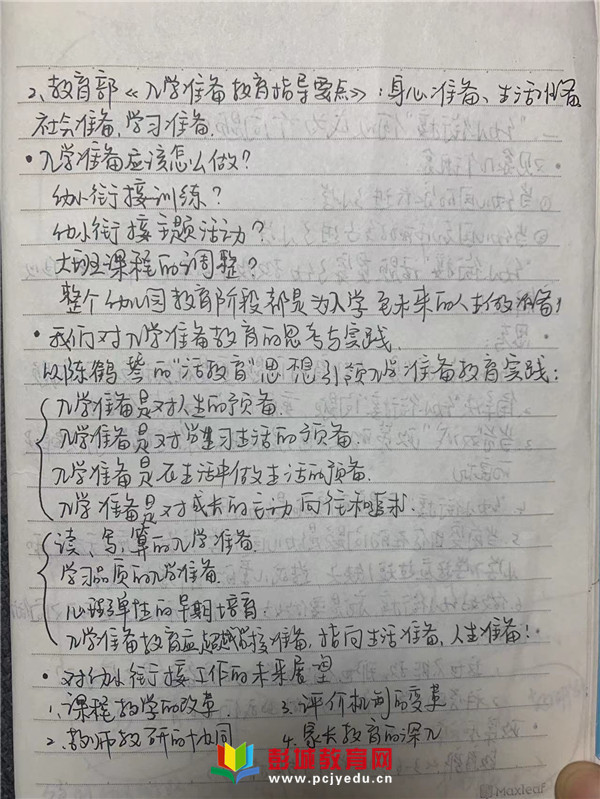 2、教育部《入学准备教育指导要点》：身心准备、生活准备
社会准备、学习准备.
• 入学准备应该怎么做？
幼小衔接训练？
幼小衔接主题活动？
大班课程的调整？
整个幼儿园教育阶段都是为入学至未来的人生做准备！
• 我们对入学准备教育的思考与实践.
以陈鹤琴的“活教育”思想引领入学准备教育实践：
入学准备是对人生的预备.
入学准备是对学习生活的预备.
入学准备是在生活中做生活的预备.
入学准备是对成长的主动向往和追求.
读、写、算的入学准备.
学习品质的入学准备.
心理弹性的早期培育.
入学准备教育应超越衔接准备，指向生活准备，人生准备！
• 对幼小衔接工作的未来展望
1、课程教学的改革 3、评价机制的变革
2、教师教研的协同 4、家长教育的深入
彭城教育网
www.pcjyedu.cn
Maxleaf